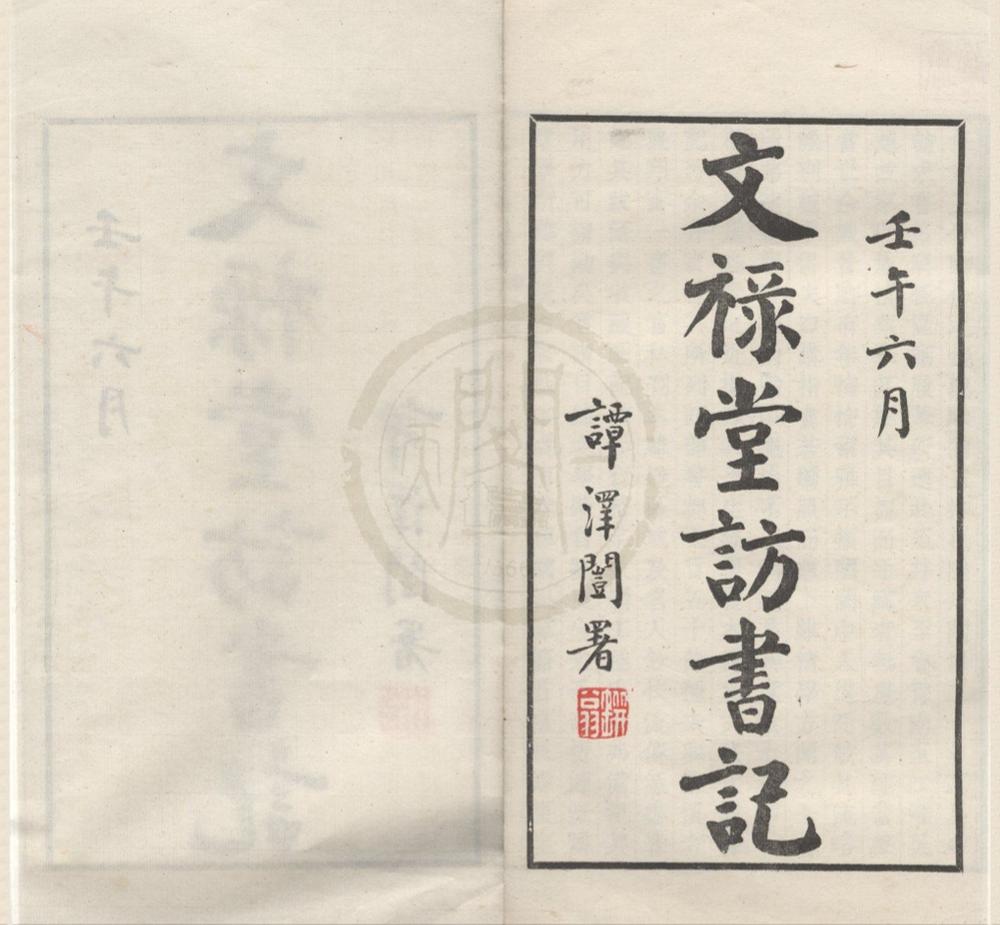 壬午六月
文禄堂訪書記
譚澤闓署